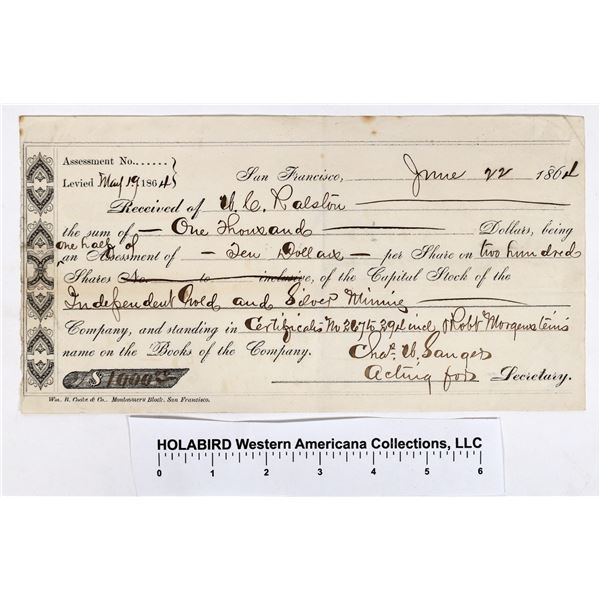 Assessment No......
Levied May 19 1864
San Francisco, June 22 1864
Received of W. C. Ralston
the sum of — One Thousand Dollars, being
one half of
an Assessment of — Ten Dollars — per Share on two hundred
Shares No. to inclusive, of the Capital Stock of the
Independent Gold and Silver Mining
Company, and standing in Certificates No 267 to 29 incl Robt Morgenstein's
name on the Books of the Company. Chas. W. Sanger
$1000 Acting for Secretary.
Wm. B. Cooke & Co., Montgomery Block, San Francisco.
HOLABIRD Western Americana Collections, LLC
0 1 2 3 4 5 6